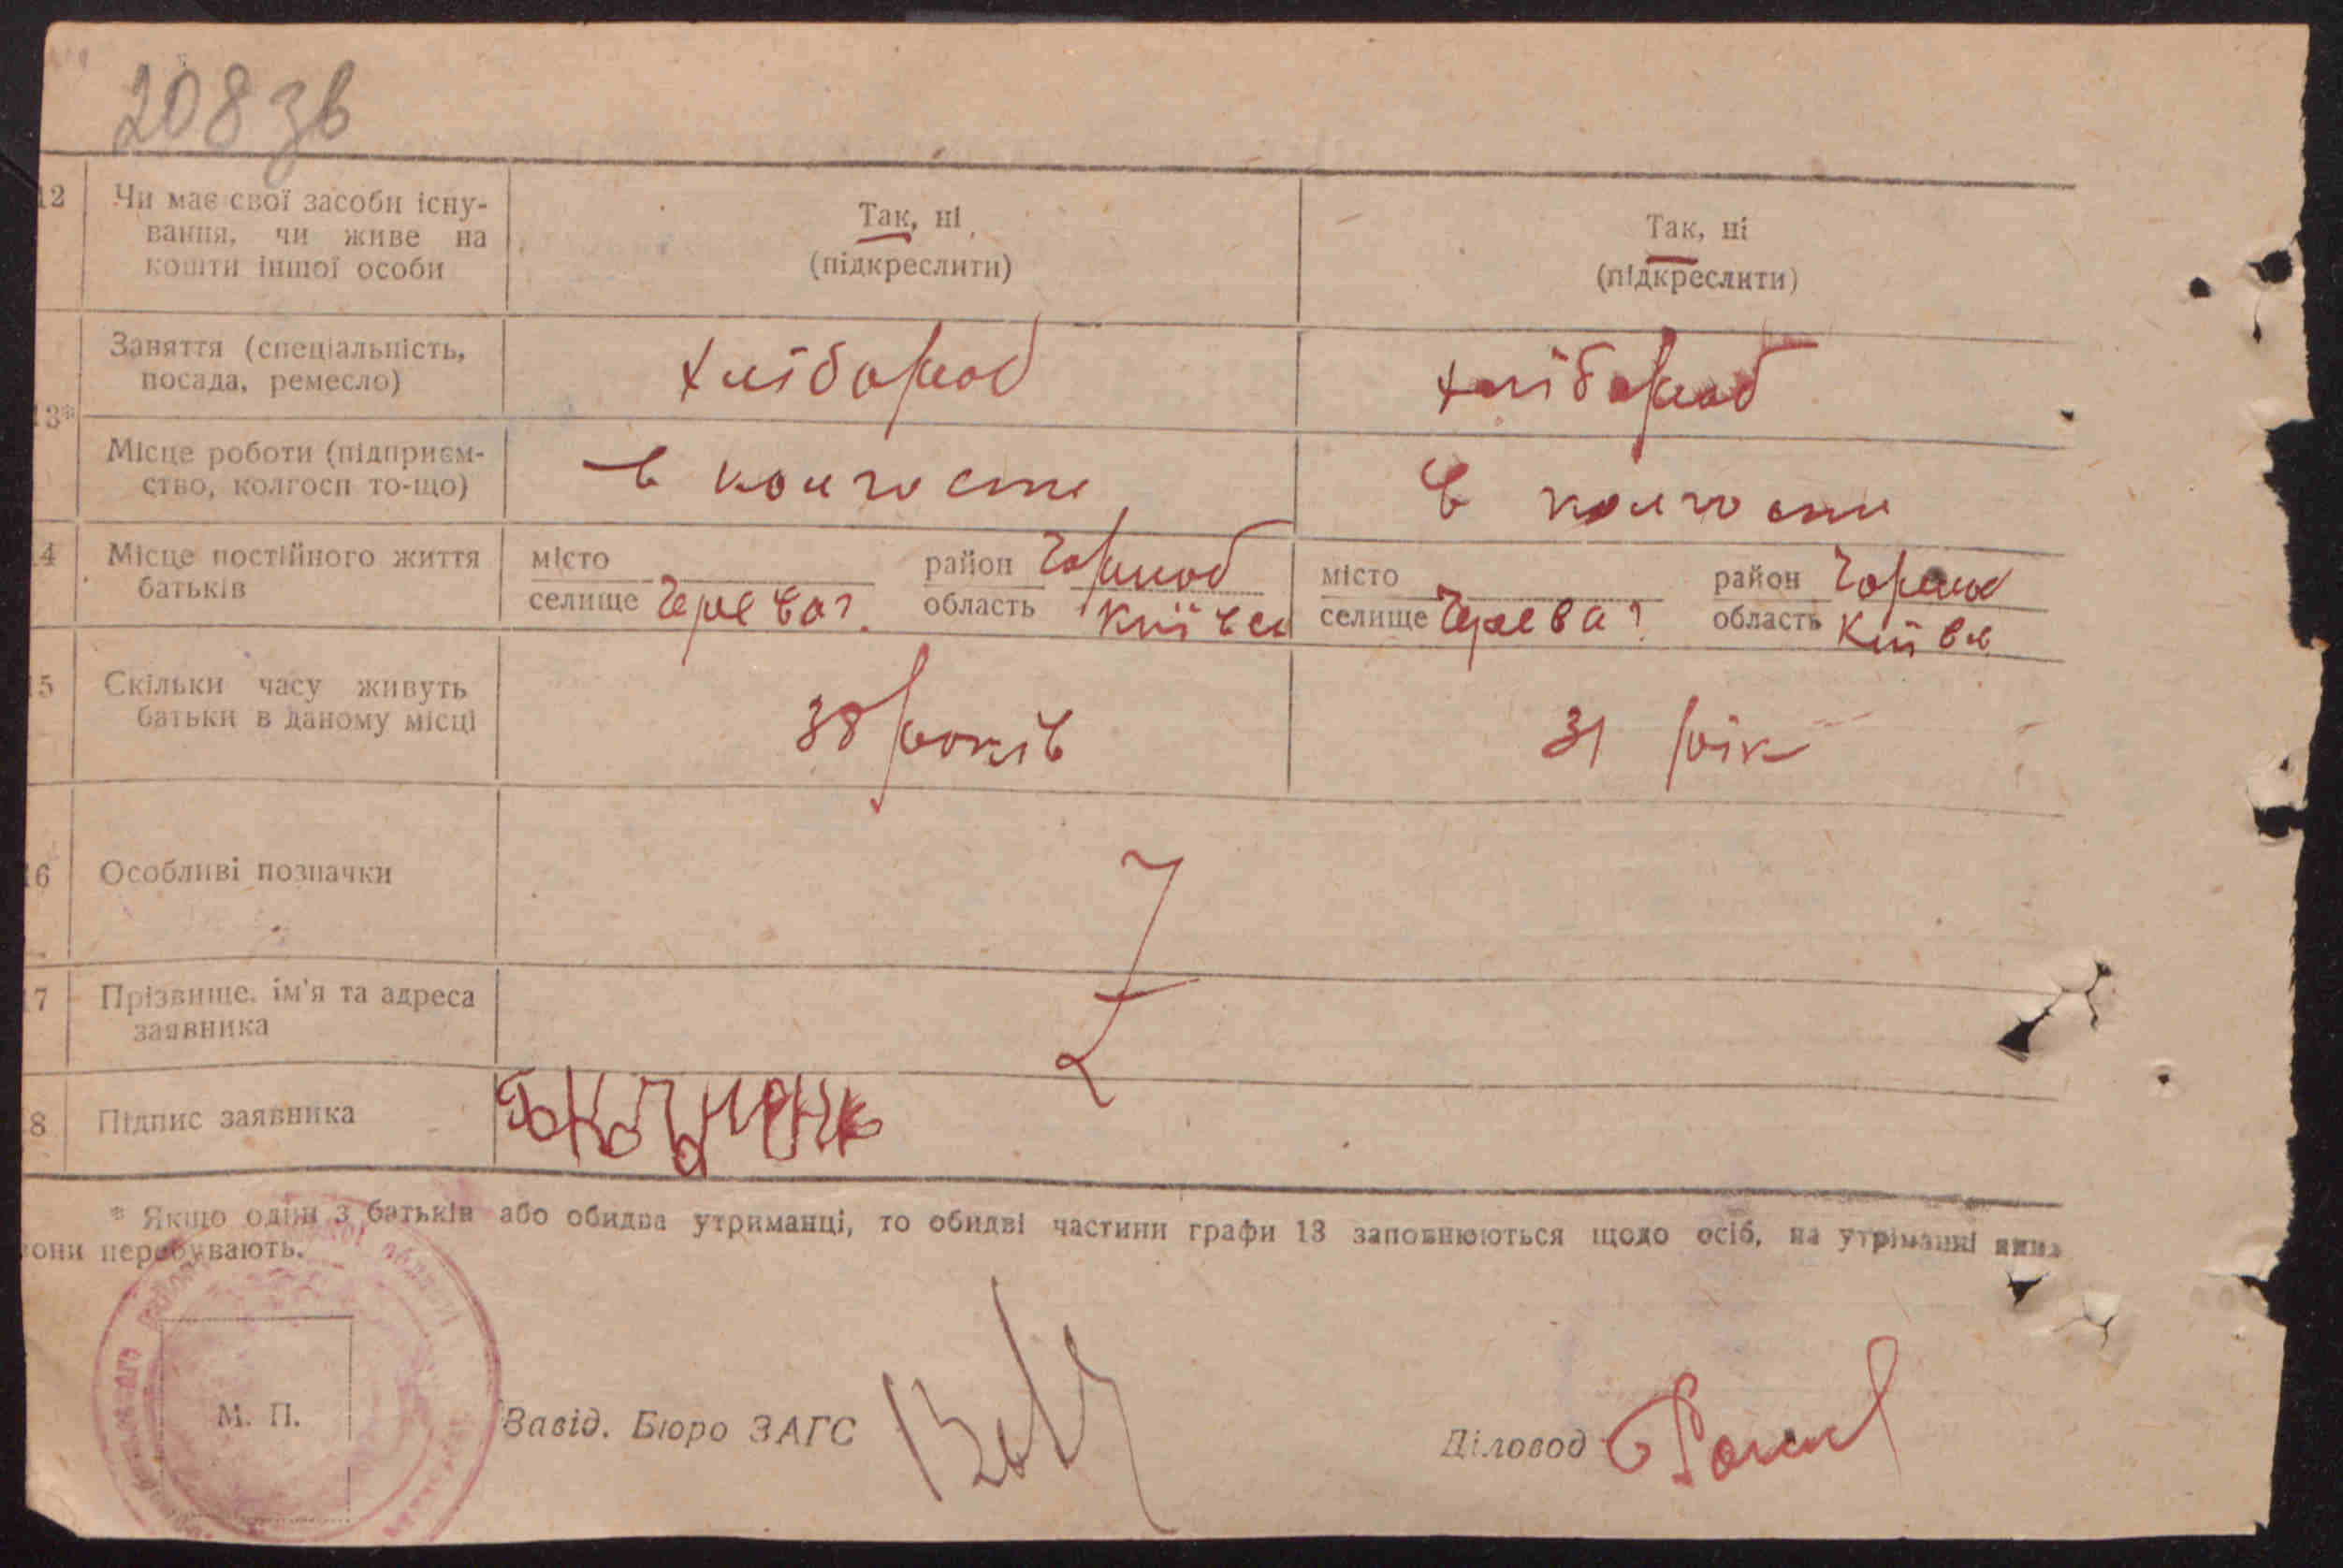 208 зв
12 Чи має свої засоби існу-
вання, чи живе на
кошти іншої особи
Так, ні
(підкреслити)
Так, ні
(підкреслити)
13*
Заняття (спеціальність,
посада, ремесло)
хлібороб
хлібороб
Місце роботи (підприєм-
ство, колгосп то-що)
в колгоспи
в колгоспи
14 Місце постійного життя
батьків
місто
селище Черевач
район Чорноб
область Київск
місто
селище Черевач
район Чорноб
область Київс
15 Скільки часу живуть
батьки в даному місці
38 років
31 рік
16 Особливі позначки
17 Прізвище, ім'я та адреса
заявника
18 Підпис заявника
* Якщо один з батьків або обидва утриманці, то обидві частини графи 13 заповнюються щодо осіб, на утріманні яких
вони перебувають.
М. П.
Завід. Бюро ЗАГС
Діловод